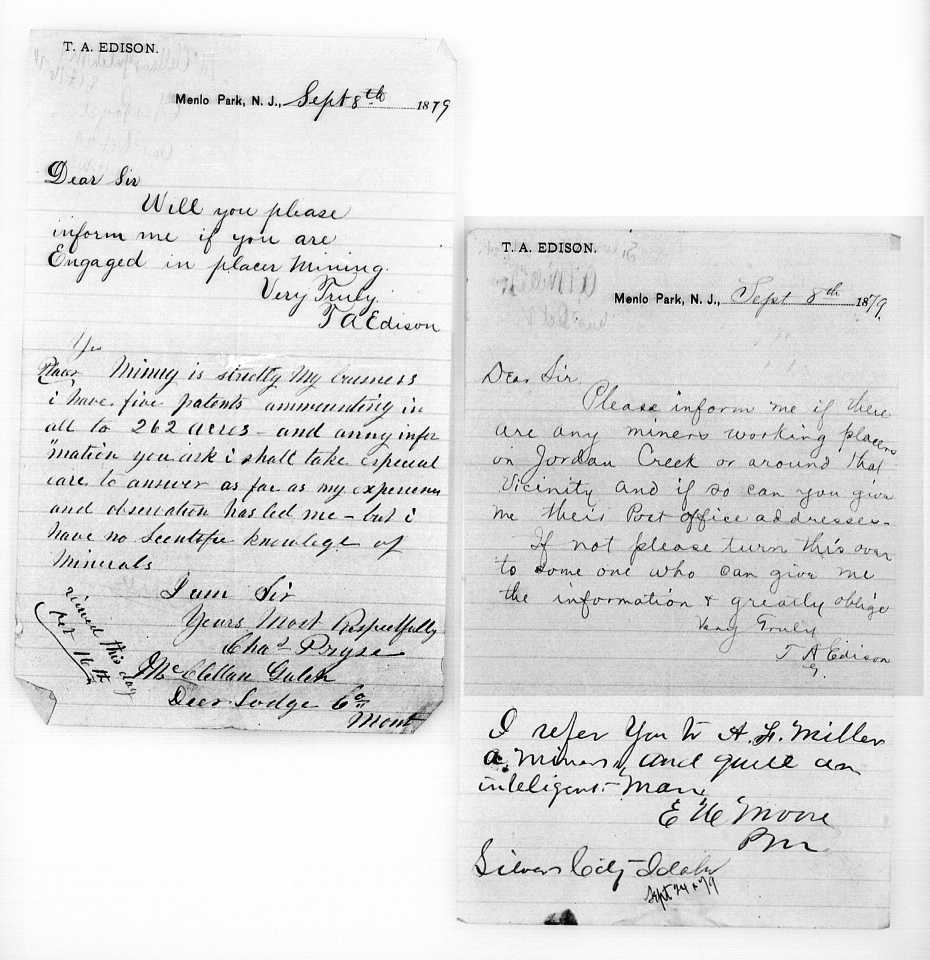 T. A. EDISON.
Menlo Park, N. J., Sept 8th 1879
Dear Sir
Will you please
inform me if you are
Engaged in placer Mining.
Very Truly.
T A Edison
Yes
Placer Mining is strictly My business
i have five patents ammounting in
all to 262 acres - and anny infor
"mation you ask i shall take especial
care to answer as far as my experience
and observation has led me - but i
have no Scentific knowlege of
Minerals
I am Sir
Yours Most Respectfully
Chas Pryse
McClellan Gulch
Deer Lodge Co
Mont
this day
16th
T. A. EDISON.
Menlo Park, N. J., Sept 8th 1879.
Dear Sir.
Please inform me if there
are any miners working placers
on Jordan Creek or around that
Vicinity and if so can you give
me their Post office addresses-
If not please turn this over
to some one who can give me
the information & greatly oblige
Very Truly
T A Edison
G.
I refer You to A. F. Miller
a. Miner, and quite an
inteligent Man,
E W Moore
P.m.
Silver City Idaho
Sept 24 79